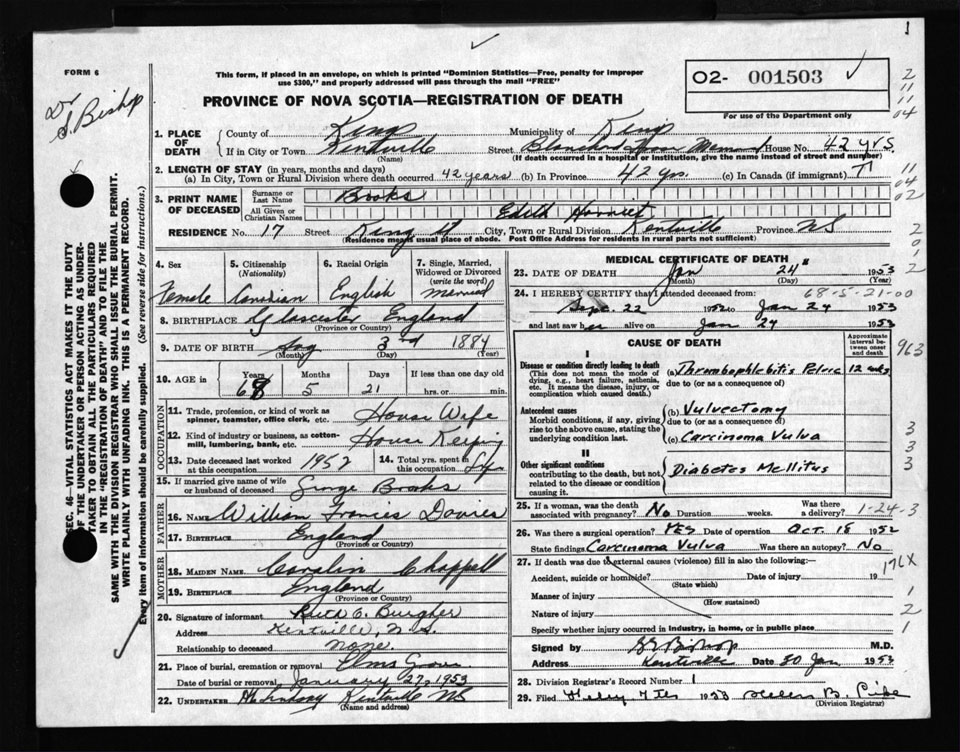 FORM 6
This form, if placed in an envelope, on which is printed "Dominion Statistics—Free, penalty for improper
use $300," and properly addressed will pass through the mail "FREE"
O2- 001503
For use of the Department only
PROVINCE OF NOVA SCOTIA—REGISTRATION OF DEATH
Dr
S. Bishop
SEC. 46—VITAL STATISTICS ACT MAKES IT THE DUTY
OF THE UNDERTAKER OR PERSON ACTING AS UNDER-
TAKER TO OBTAIN ALL THE PARTICULARS REQUIRED
IN THE "REGISTRATION OF DEATH" AND TO FILE THE
SAME WITH THE DIVISION REGISTRAR WHO SHALL ISSUE THE BURIAL PERMIT.
WRITE PLAINLY WITH UNFADING INK. THIS IS A PERMANENT RECORD.
Every item of Information should be carefully supplied. (See reverse side for instructions.)
1. PLACE OF DEATH County of Kings Municipality of Kings
If in City or Town Kentville Street Blanchard House No. 42 yrs.
(Name) (If death occurred in a hospital or institution, give the name instead of street and number)
2. LENGTH OF STAY (in years, months and days)
(a) In City, Town or Rural Division where death occurred 42 years (b) In Province 42 yrs. (c) In Canada (if immigrant)
3. PRINT NAME OF DECEASED Surname or Last Name Brooks
All Given or Christian Names Edith Harriet
RESIDENCE No. 17 Street King St City, Town or Rural Division Kentville Province NS
(Residence means usual place of abode. Post Office Address for residents in rural parts not sufficient)
4. Sex 5. Citizenship (Nationality) 6. Racial Origin 7. Single, Married, Widowed or Divorced (write the word)
Female Canadian English Married
8. BIRTHPLACE Gloscester England
(Province or Country)
9. DATE OF BIRTH Aug 3rd 1884
(Month) (Day) (Year)
10. AGE in Years Months Days If less than one day old
68 5 21 hrs. or min.
OCCUPATION
11. Trade, profession, or kind of work as spinner, teamster, office clerk, etc. House Wife
12. Kind of industry or business, as cotton-mill, lumbering, bank, etc. House Keeping
13. Date deceased last worked at this occupation 1952 14. Total yrs. spent in this occupation
15. If married give name of wife or husband of deceased George Brooks
FATHER
16. NAME William Francis Davies
17. BIRTHPLACE England
(Province or Country)
MOTHER
18. MAIDEN NAME Carolin Chappell
19. BIRTHPLACE England
(Province or Country)
20. Signature of informant Ruth C. Burgher
Address Kentville, N.S.
Relationship to deceased none.
21. Place of burial, cremation or removal Elms Grove
Date of burial or removal January 27, 1953
22. UNDERTAKER Kentville NS
(Name and address)
MEDICAL CERTIFICATE OF DEATH
23. DATE OF DEATH Jan 24 1953
(Month) (Day)
24. I HEREBY CERTIFY that I attended deceased from: 68-5-21-00
Sept. 22 1952 to Jan 24 1953
and last saw her alive on Jan 24 1953
CAUSE OF DEATH
Approximate interval between onset and death
I
Disease or condition directly leading to death
(This does not mean the mode of dying, e.g., heart failure, asthenia, etc. It means the disease, injury, or complication which caused death.)
(a) Thrombophlebitis Pelvic 12 wks
due to (or as a consequence of)
Antecedent causes
Morbid conditions, if any, giving rise to the above cause, stating the underlying condition last.
(b) Vulvectomy
due to (or as a consequence of)
(c) Carcinoma Vulva
II
Other significant conditions
contributing to the death, but not related to the disease or condition causing it.
Diabetes Mellitus
963
25. If a woman, was the death associated with pregnancy? No Duration weeks. Was there a delivery? 1-24-3
26. Was there a surgical operation? YES Date of operation Oct. 18 1952
State findings Carcinoma Vulva Was there an autopsy? No
27. If death was due to external causes (violence) fill in also the following:— 176X
Accident, suicide or homicide? Date of injury 19
(State which)
Manner of injury
(How sustained)
Nature of injury
Specify whether injury occurred in industry, in home, or in public place
Signed by Bishop M.D.
Address Kentville Date 30 Jan 1953
28. Division Registrar's Record Number 1
29. Filed 1953 Helen B. Pike
(Division Registrar)